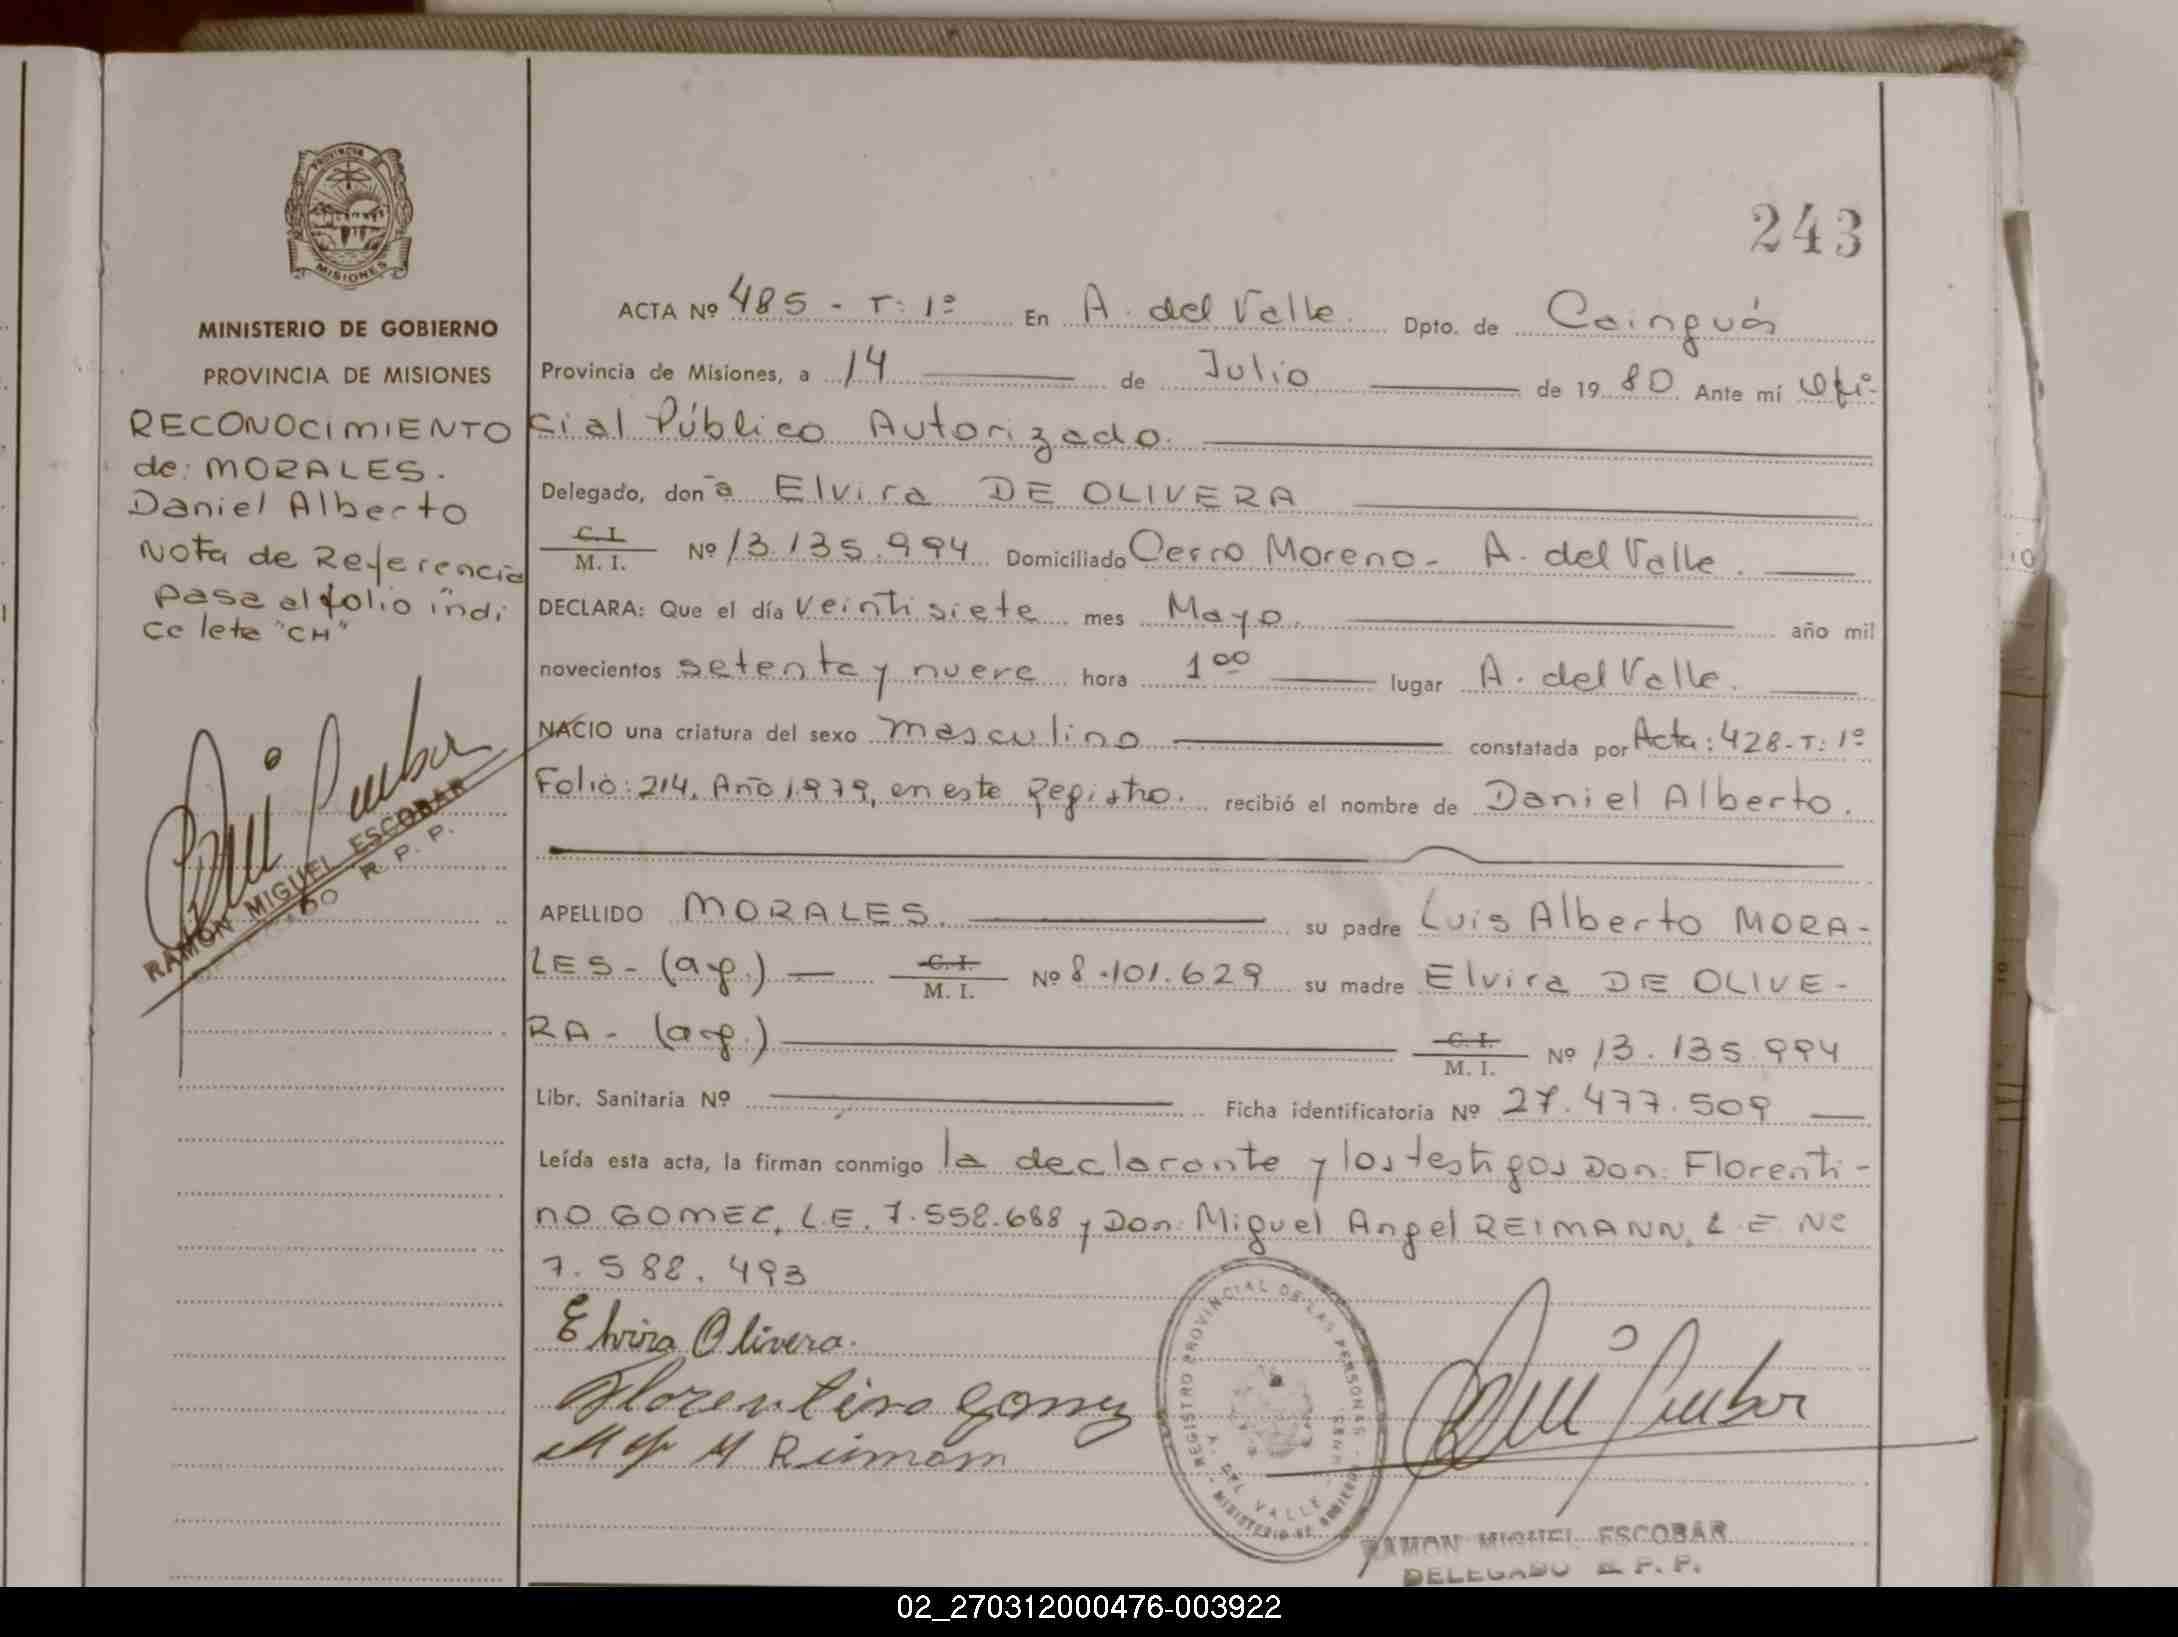 PROVINCIA
MISIONES
MINISTERIO DE GOBIERNO
PROVINCIA DE MISIONES
RECONOCIMIENTO
de: MORALES.
Daniel Alberto
Nota de Referencia
pasa al folio indi
ce letra "CH"
RAMON MIGUEL ESCOBAR
DELEGADO R. P. P.
243
ACTA Nº 485 - T: 1º En A. del Valle. Dpto. de Cainguás
Provincia de Misiones, a 14 de Julio de 1980. Ante mí Ofi-
cial Público Autorizado.
Delegado, don-a Elvira DE OLIVERA
C. I.
M. I. Nº 13.135.994 Domiciliado Cerro Moreno - A. del Valle.
DECLARA: Que el día veintisiete mes Mayo. año mil
novecientos setenta y nueve hora 1 00 lugar A. del Valle.
NACIO una criatura del sexo masculino constatada por Acta: 428-T: 1º
Folio: 214. Año 1979, en este Registro. recibió el nombre de Daniel Alberto.
APELLIDO MORALES. su padre Luis Alberto MORA-
LES - (arg.) C. I. M. I. Nº 8.101.629 su madre Elvira DE OLIVE-
RA - (arg.) C. I. M. I. Nº 13.135.994
Libr. Sanitaria Nº Ficha identificatoria Nº 27.477.509
Leída esta acta, la firman conmigo la declarante y los testigos Don: Florenti-
no GOMEZ, L.E. 7.558.688 y Don: Miguel Angel REIMANN, L.E Nº
7.588.493
Elvira Olivera.
Florentino Gomez
REGISTRO PROVINCIAL DE LAS PERSONAS
A. DEL VALLE - MNES.
MINISTERIO DE GOBIERNO
RAMON MIGUEL ESCOBAR
DELEGADO R. P. P.
02_270312000476-003922